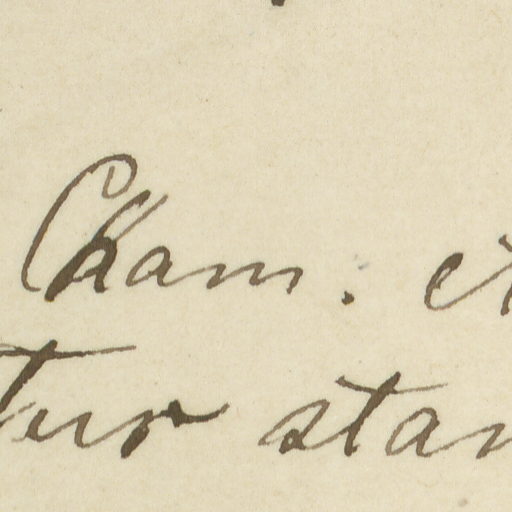 Cham. et
tur stan